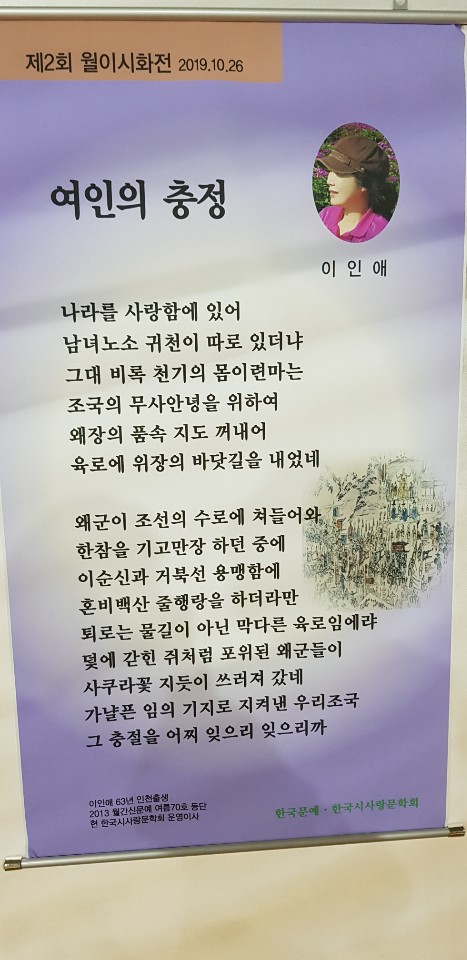 제2회 월이시화전 2019.10.26
여인의 충정
이 인 애
나라를 사랑함에 있어
남녀노소 귀천이 따로 있더냐
그대 비록 천기의 몸이련마는
조국의 무사안녕을 위하여
왜장의 품속 지도 꺼내어
육로에 위장의 바닷길을 내었네
왜군이 조선의 수로에 쳐들어와
한참을 기고만장 하던 중에
이순신과 거북선 용맹함에
혼비백산 줄행랑을 하더라만
퇴로는 물길이 아닌 막다른 육로임에랴
덫에 갇힌 쥐처럼 포위된 왜군들이
사쿠라꽃 지듯이 쓰러져 갔네
가냘픈 임의 기지로 지켜낸 우리조국
그 충절을 어찌 잊으리 잊으리까
이인애 63년 인천출생
2013 월간신문예 여름70호 등단
현 한국시사랑문학회 운영이사
한국문예 · 한국시사랑문학회